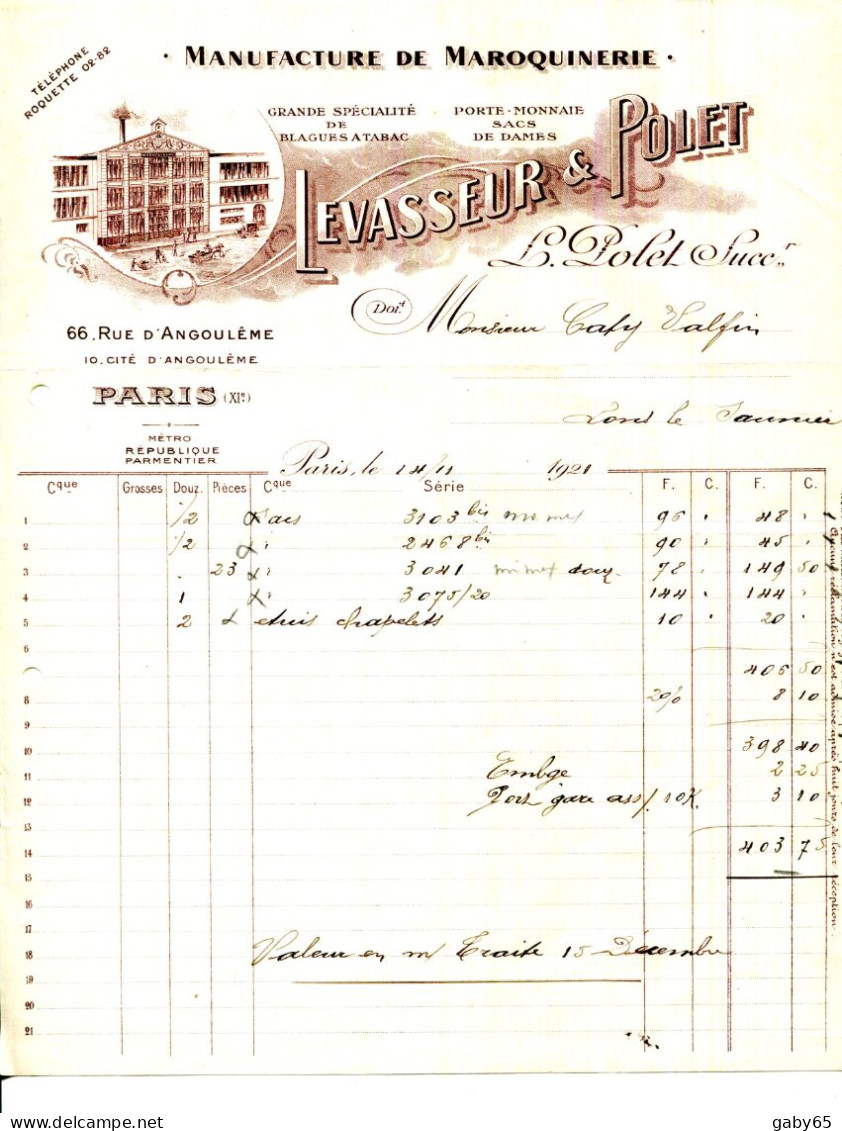 TÉLÉPHONE
ROQUETTE 02-82
· MANUFACTURE DE MAROQUINERIE ·
GRANDE SPÉCIALITÉ
DE
BLAGUES A TABAC
PORTE-MONNAIE
SACS
DE DAMES
LEVASSEUR & POLET
L. Polet Succr
Doit
Monsieur Caty Valfin
66, RUE D'ANGOULÊME
10, CITÉ D'ANGOULÊME
PARIS (XIe)
Lons le Saunier
MÉTRO
RÉPUBLIQUE
PARMENTIER
Paris, le 14/11 1921
Cque Grosses Douz. Pièces Cque Série F. C. F. C.
1 1/2 Sacs 3103 bis 96 . 48 .
2 1/2 " 2468 bis 90 . 45 .
3 . 23 " 3041 douz. 78 . 149 50
4 1 " 3075/20 144 . 144 .
5 2 etuis chapelets 10 . 20 .
6
406 50
8 2% 8 10
9
10 398 40
11 Embge 2 25
12 Port gare ass/. 10K. 3 10
13
14 403 75
15
16
17
18 Valeur en m/ Traite 15 Décembre
19
20
21
Aucune réclamation n'est admise après huit jours de leur réception.
delcampe.net
gaby65